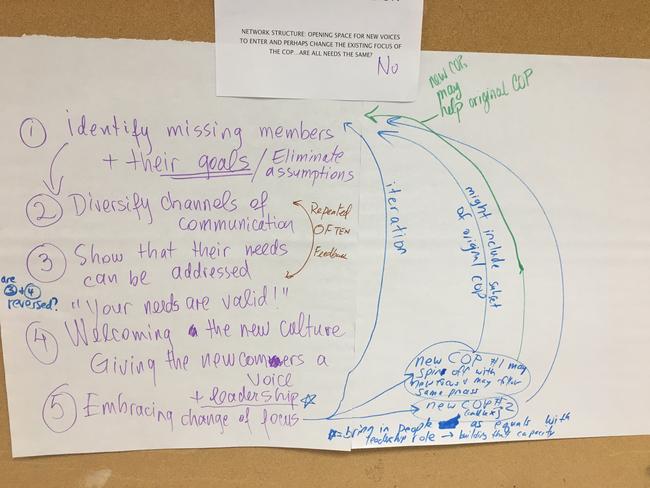 NETWORK STRUCTURE: OPENING SPACE FOR NEW VOICES
TO ENTER AND PERHAPS CHANGE THE EXISTING FOCUS OF
THE COP...ARE ALL NEEDS THE SAME?
No
① identify missing members
+ their goals / Eliminate
assumptions
② Diversify channels of
communication
③ Show that their needs
can be addressed
"Your needs are valid!"
are
③ + ④
reversed?
④ Welcoming the new culture
Giving the newcomers a
voice
+ leadership ☆
⑤ Embracing change of focus
Repeated
OFTEN
Feedback
iteration
new COPs
may
help original COP
might include subset
of original COP
new COP #1 may
spin off with
new focus & may follow
same process
new COP #2
☆ = bring in people as equals with
leadership role → building that capacity